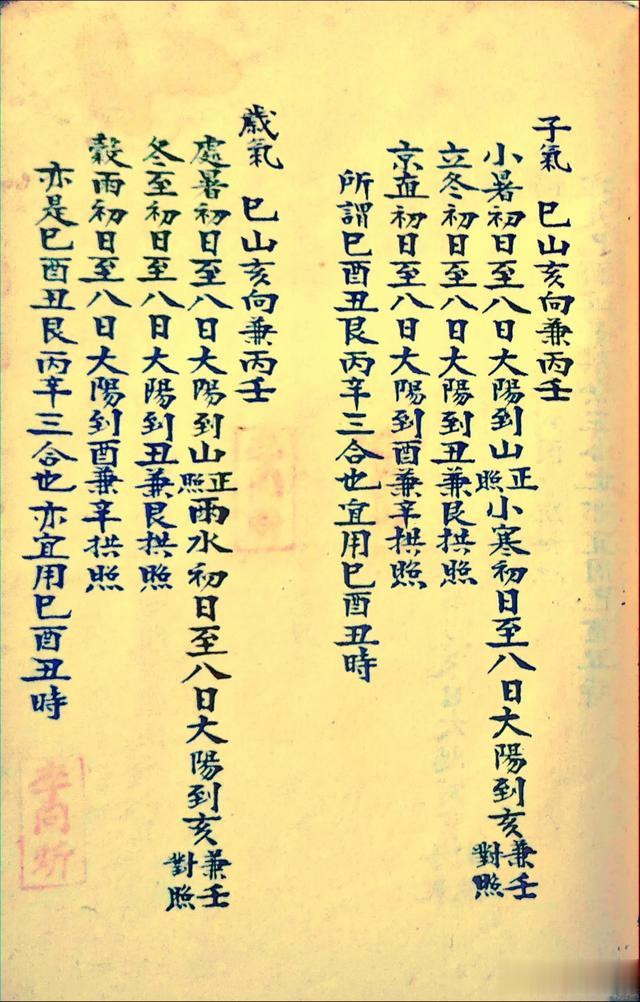 子氣　巳山亥向兼丙壬
小暑初日至八日大陽到山正照小寒初日至八日大陽到亥兼壬對照
立冬初日至八日大陽到丑兼艮拱照
京直初日至八日大陽到酉兼辛拱照
所謂巳酉丑艮丙辛三合也宜用巳酉丑時
歲氣　巳山亥向兼丙壬
處暑初日至八日大陽到山正照雨水初日至八日大陽到亥兼壬對照
冬至初日至八日大陽到丑兼艮拱照
穀雨初日至八日大陽到酉兼辛拱照
亦是巳酉丑艮丙辛三合也亦宜用巳酉丑時